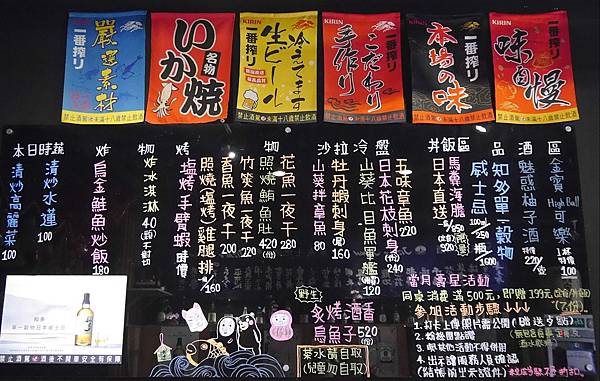 一番搾り
嚴選素材
名物
いか焼
KIRIN
一番搾り
冷えてます
生ビール
KIRIN
一番搾り
こだわり
手作り
一番搾り
本場の味
KIRIN
一番搾り
味自慢
禁止酒駕 未滿十八歲禁止飲酒
本日時蔬
清炒水蓮 100
清炒高麗菜 100
炸物
烏金鮭魚炒飯 180
炸冰淇淋 40
烤物
塩烤手臂蝦 時價
照燒塩烤雞腿排 160
香魚一夜干 200
竹筴魚一夜干 220
照燒鮪魚肚 420
花魚一夜干 280
沙拉
山葵拌章魚 80
牡丹蝦刺身 150
冷盤
山葵比目魚軍艦 120
日本花枝刺身 240
五味章魚 220
丼飯區
日本直送
馬糞海膽
品酒區
威士忌
知多單一穀物
魅惑柚子酒 220
金賓 High Ball
可樂
當月壽星活動
同桌消費滿500元，即贈199元
參加活動步驟↓↓↓
1.打卡上傳照片
野生
炙烤酒香
烏魚子 520
茶水黃自取
(兒童勿自取)
知多
單一穀物日本威士忌
禁止酒駕 酒後不開車安全有保障